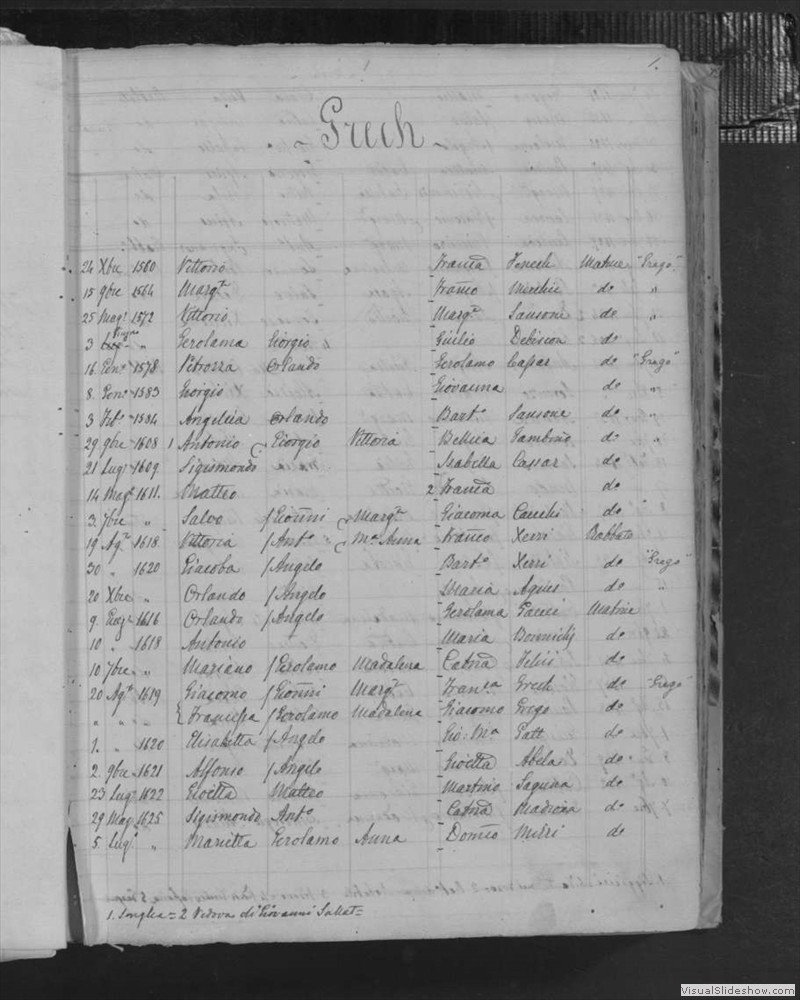 1.
Grech
24 Xbre 1560 Vittorio Francā Fenech Matrice "Grego"
15 9bre 1564 Margt Franco do "
25 Magо 1572 Vittorio Margt Sansone do "
3 Giugno " Gerolama Giorgio Giulio Debison do
16 Genо 1578 Petrozza Orlando Gerolamo Cassar do "Grego"
8 Genо 1583 Giorgio Giovanna do "
3 Febо 1584 Angelica Orlando Barto Sansone do "
29 9bre 1608 1 Antonio Giorgio Vittoria Belsia Gambino do "
21 Lugо 1609 Sigismondo Isabella Cassar do
14 Magо 1611. Matteo 2 Francā do
3. 7bre " Salvo Gioñni Margt Giacoma do
19 Agt 1618 Vittoria Anto Ma Anna Franco Xerri Rabbato
30 " 1620 Giacoba Angelo Barto Xerri do "Grego"
20 Xbre " Orlando Angelo Maria Agius do "
9 1616 Orlando Angelo Gerolama Matrice
10 " 1618 Antonio Maria Bonnich do
10 7bre " Mariano Gerolamo Madalena Catnā Felici do
20 Agt 1619 Giacomo Gioñni Margt Transa Grech do "Grego"
" " " Francesca Gerolamo Madalena Giacomo Grego do
1. " 1620 Elisabetta Angelo Gio: Ma Gatt do
2. 9bre 1621 Alfonso Angelo Gioella Abela do
23 Lugо 1622 Gioella Matteo Martino Saguna do
29 Magо 1625 Sigismondo Anto Catnā do
5 Lugо " Marietta Gerolamo Anna Domco Micci do
1. Senglea = 2 Vedova di Giovanni Saliet =
VisualSlideshow.com